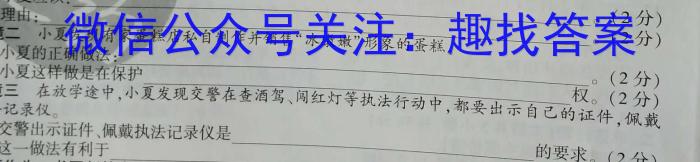 理由：（2分）
题二 小夏发现有家蛋糕店私自制作并销售“冰墩墩”形象的蛋糕
微信公众号关注：趣找答案
小夏的正确做法：
小夏这样做是在保护 权。（2分）
题三 在放学途中，小夏发现交警在查酒驾、闯红灯等执法行动中，都要出示自己的证件，佩戴
记录仪。
交警出示证件、佩戴执法记录仪是 的要求。（2分）
这一做法有利于